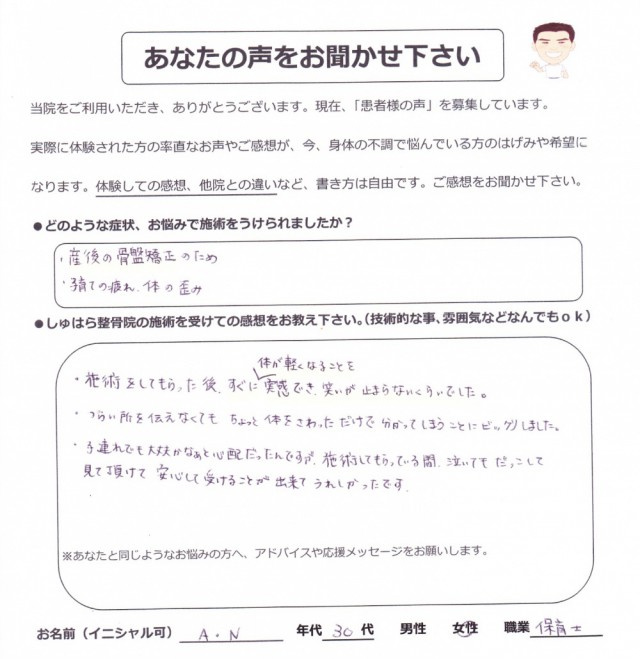 あなたの声をお聞かせ下さい
当院をご利用いただき、ありがとうございます。現在、「患者様の声」を募集しています。
実際に体験された方の率直なお声やご感想が、今、身体の不調で悩んでいる方のはげみや希望に
なります。体験しての感想、他院との違いなど、書き方は自由です。ご感想をお聞かせ下さい。
●どのような症状、お悩みで施術をうけられましたか？
・産後の骨盤矯正のため
・子育ての疲れ、体の歪み
●しゅはら整骨院の施術を受けての感想をお教え下さい。（技術的な事、雰囲気などなんでもｏｋ）
体が軽くなることを
・施術をしてもらった後、すぐに実感でき、笑いが止まらないくらいでした。
・つらい所を伝えなくても ちょっと体をさわっただけで分かってしまうことにビックリしました。
・子連れでも大丈夫かなぁと心配だったんですが、施術してもらっている間、泣いてもだっこして
見て頂けて 安心して受けることが出来てうれしかったです。
※あなたと同じようなお悩みの方へ、アドバイスや応援メッセージをお願いします。
お名前（イニシャル可） A・N 年代 30 代 男性 女性 職業 保育士